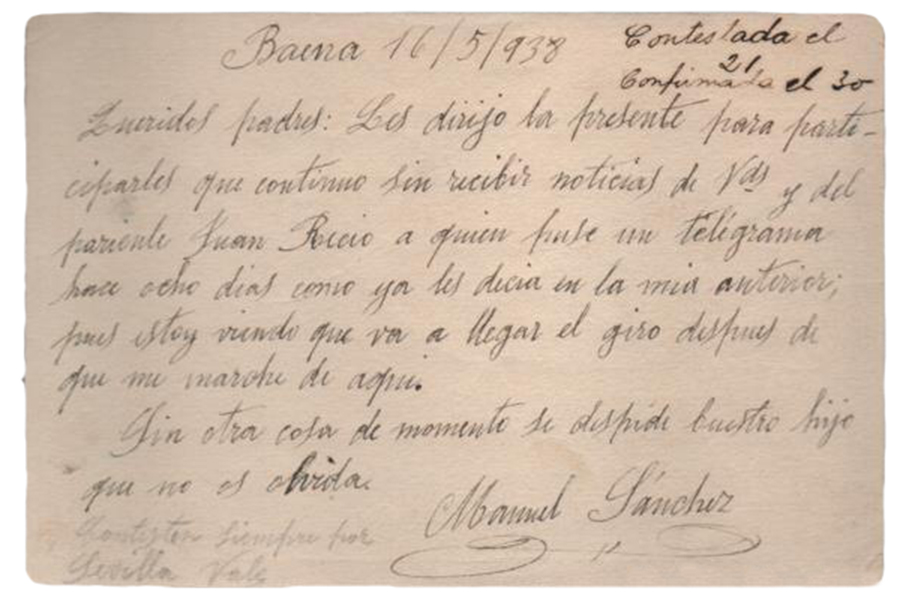 Baena 16/5/938
Contestada el
21
Confirmada el 30
Queridos padres: Les dirijo la presente para parti-
ciparles que continuo sin recibir noticias de Vds y del
pariente Juan Recio a quien puse un telégrama
hace ocho dias como ya les decia en la mia anterior;
pues estoy viendo que va a llegar el giro despues de
que me marche de aqui.
Sin otra cosa de momento se despide buestro hijo
que no os olvida.
Manuel Sánchez
Contesten siempre por
Sevilla Vale